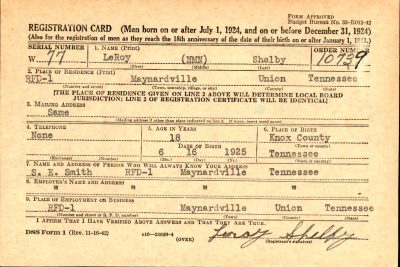 Form Approved
Budget Bureau No. 33-R012-42
REGISTRATION CARD (Men born on or after July 1, 1924, and on or before December 31, 1924)
(Also for the registration of men as they reach the 18th anniversary of the date of their birth on or after January 1, 1925.)
SERIAL NUMBER 1. NAME (Print) ORDER NUMBER
W 77 LeRoy (NMN) Shelby 10739
2. PLACE OF RESIDENCE (Print)
RFD-1 Maynardville Union Tennessee
(Number and street) (Town, township, village, or city) (County) (State)
[THE PLACE OF RESIDENCE GIVEN ON LINE 2 ABOVE WILL DETERMINE LOCAL BOARD
JURISDICTION; LINE 2 OF REGISTRATION CERTIFICATE WILL BE IDENTICAL]
3. MAILING ADDRESS
Same
(Mailing address if other than place indicated on line 2. If same, insert word same)
4. TELEPHONE 5. AGE IN YEARS 6. PLACE OF BIRTH
None 18 Knox County
DATE OF BIRTH (Town or county)
6 16 1925 Tennessee
(Exchange) (Number) (Mo.) (Day) (Yr.) (State or country)
7. NAME AND ADDRESS OF PERSON WHO WILL ALWAYS KNOW YOUR ADDRESS
S. E. Smith RFD-1 Maynardville Tennessee
8. EMPLOYER'S NAME AND ADDRESS
9. PLACE OF EMPLOYMENT OR BUSINESS
RFD-1 Maynardville Union Tennessee
(Number and street or R. F. D. number) (Town) (County) (State)
I AFFIRM THAT I HAVE VERIFIED ABOVE ANSWERS AND THAT THEY ARE TRUE.
DSS Form 1 (Rev. 11-16-42) (OVER) Leroy Shelby
(Registrant's signature)